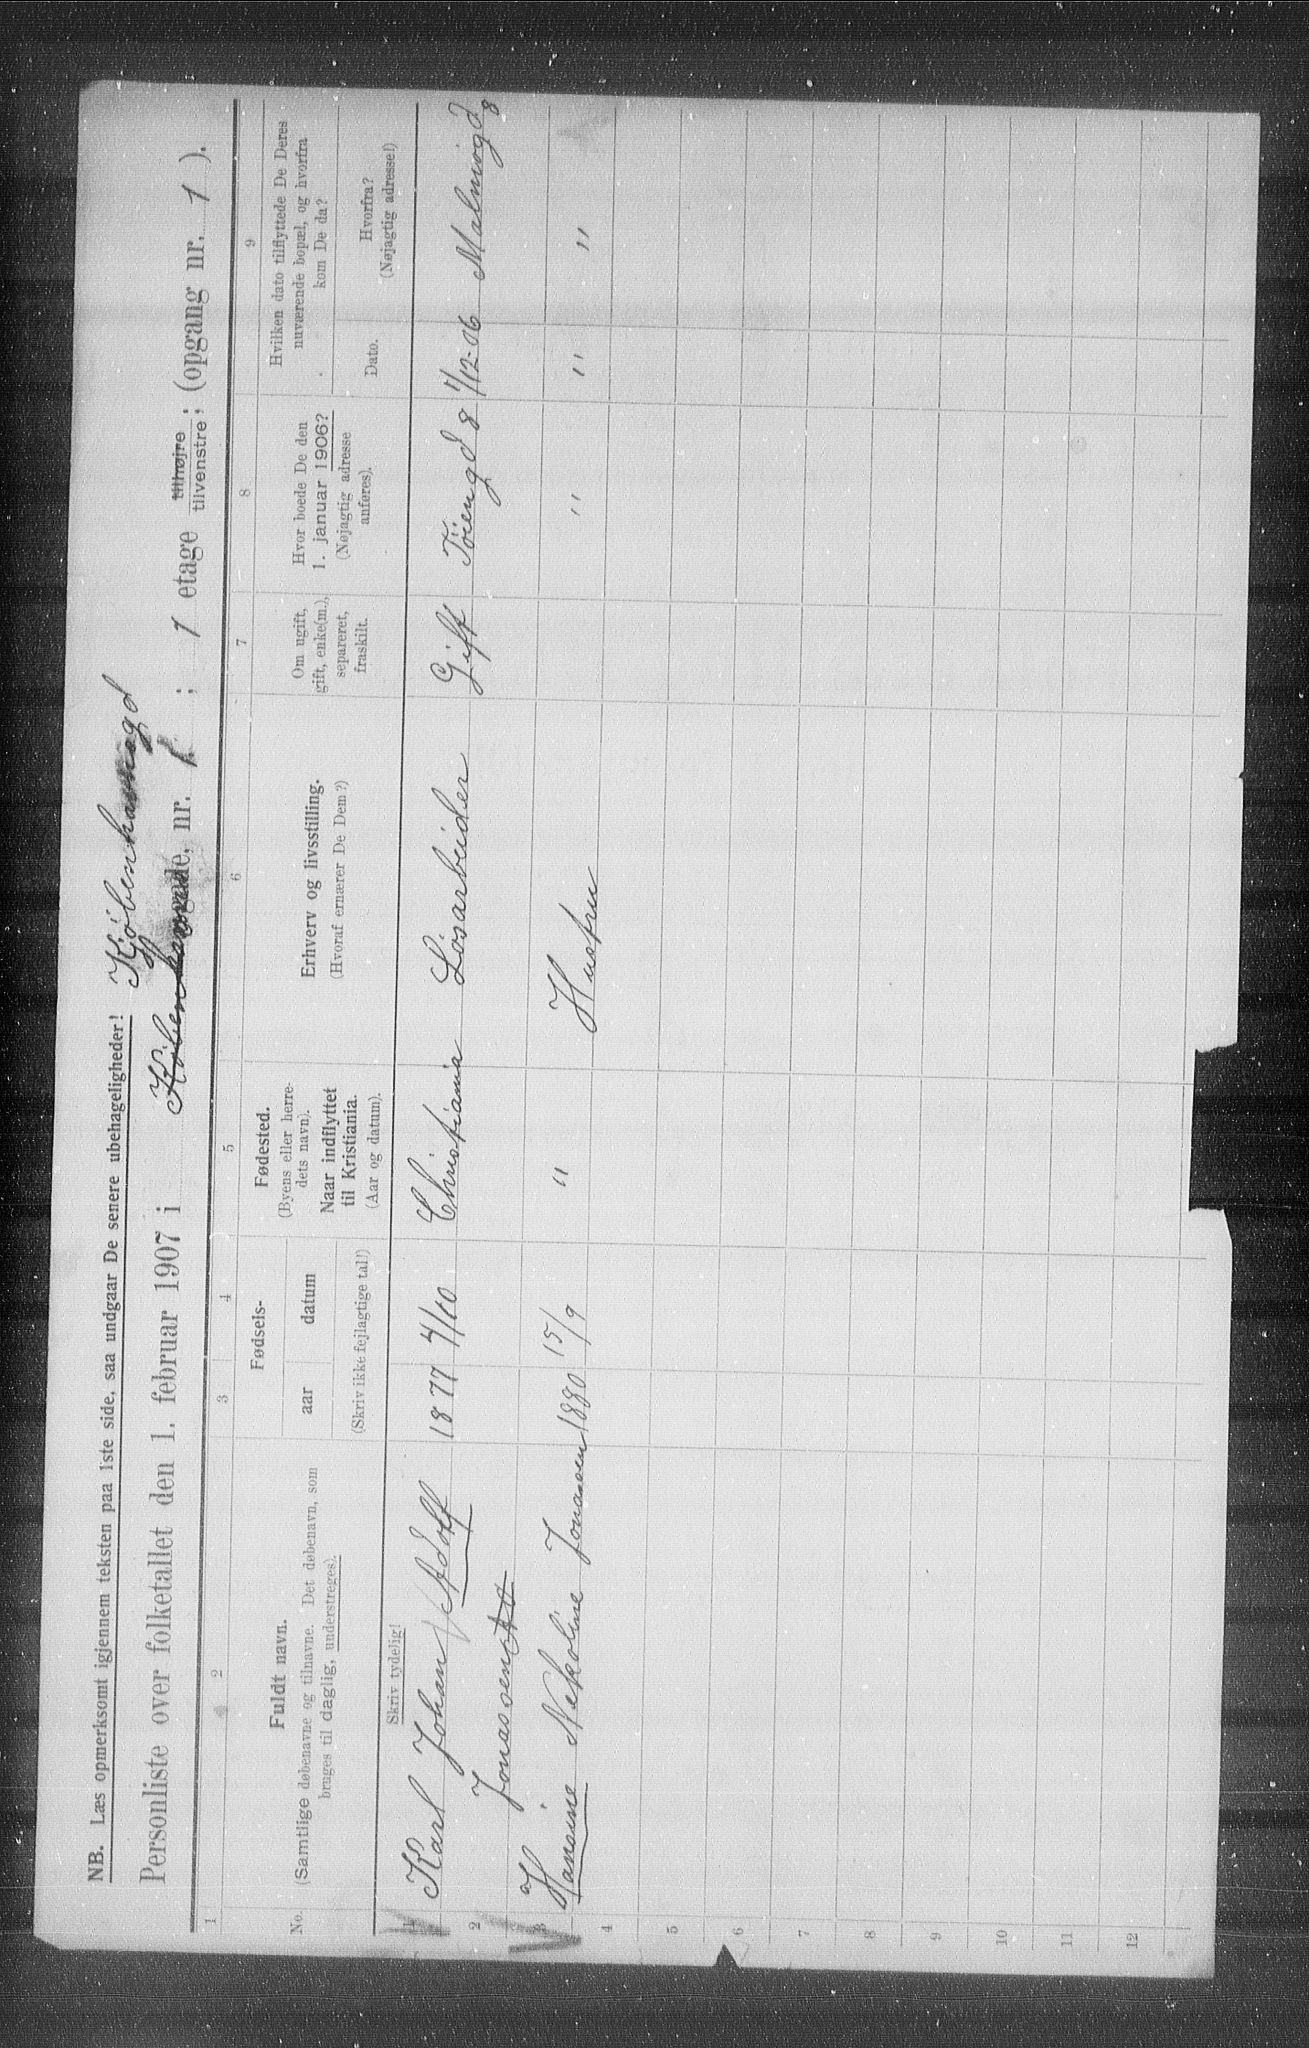 NB. Læs opmerksomt igjennem teksten paa 1ste side, saa undgaar De senere ubehageligheder!
Kjöbenhavngd
Personliste over folketallet den 1. februar 1907 i Köbenhavn gade, nr. 1. ; 1 etage tilhøjre tilvenstre; (opgang nr. 1 ).
1 2 3 4 5 6 7 8 9
No.
Fuldt navn.
(Samtlige døbenavne og tilnavne. Det døbenavn, som
bruges til daglig, understreges).
Skriv tydelig!
Fødsels-
aar datum
(Skriv ikke fejlagtige tal!)
Fødested.
(Byens eller herre-
dets navn).
Naar indflyttet
til Kristiania.
(Aar og datum).
Erhverv og livsstilling.
(Hvoraf ernærer De Dem?)
Om ugift,
gift, enke(m.),
separeret,
fraskilt.
Hvor boede De den
1. januar 1906?
(Nøjagtig adresse
anføres).
Hvilken dato tilflyttede De Deres
nuværende bopæl, og hvorfra
kom De da?
Dato.
Hvorfra?
(Nøjagtig adresse!)
1 Karl Johan Adolf 1877 4/10 Christiania Lösarbeider Gift Töiengd 8 1/12-06 Malmögd 8
2 Jonassen
3 Hansine Nekoline Jonassen 1880 15/9 " Hustru " " "
4
5
6
7
8
9
10
11
12